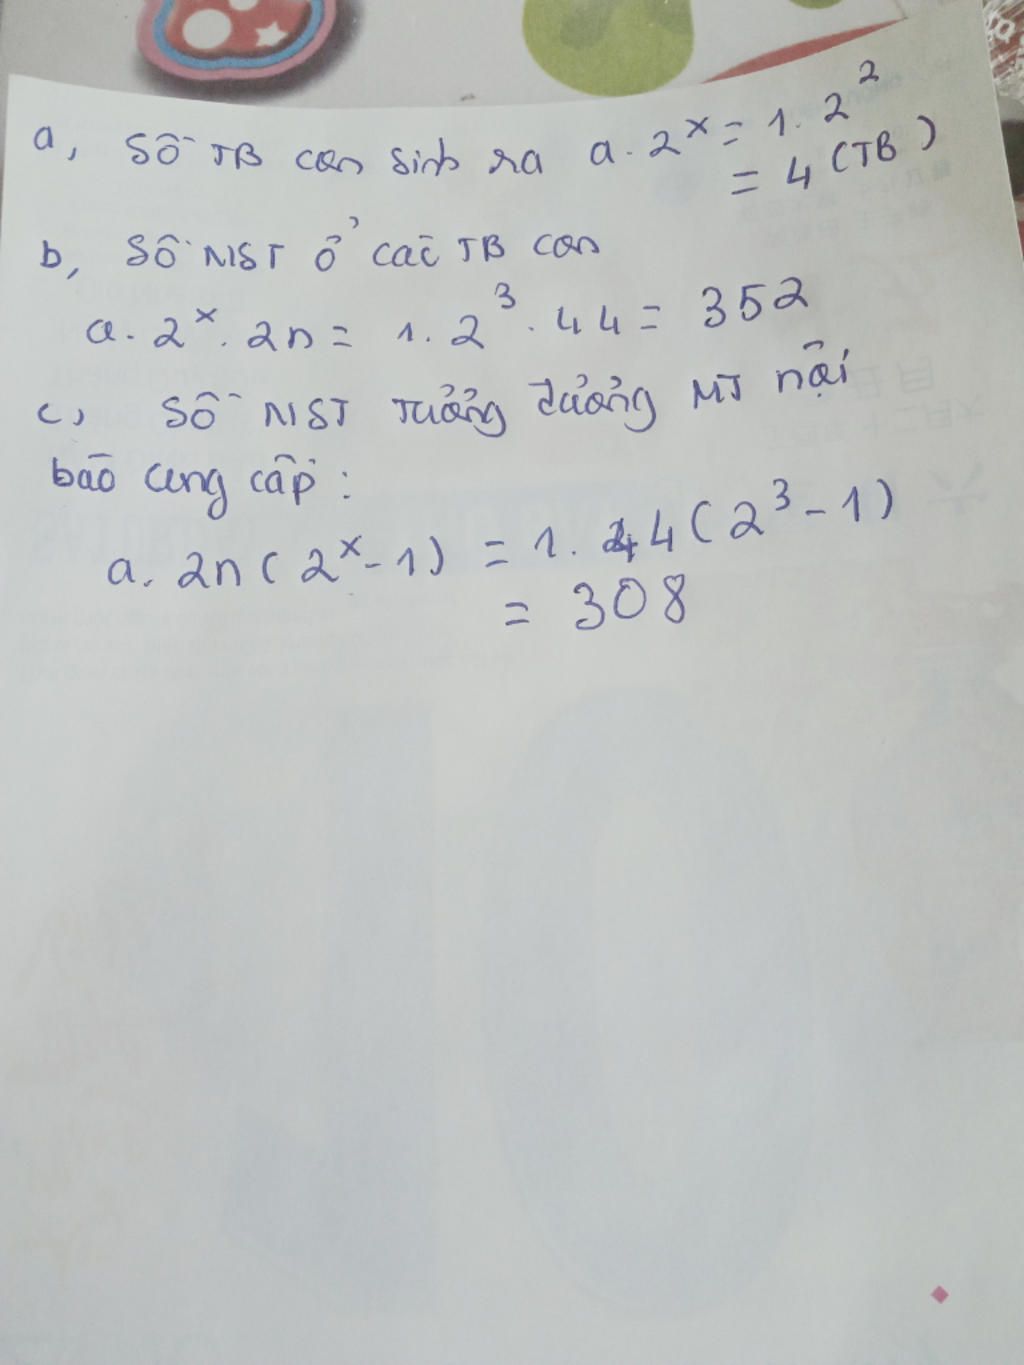 a, Số TB con sinh ra a. 2^x = 1. 2^2
= 4 (TB)
b, Số NST ở các TB con
a. 2^x. 2n = 1. 2^3. 44 = 352
c, Số NST tương đương MT nội
bào cung cấp:
a. 2n ( 2^x - 1) = 1. 44 (2^3 - 1)
= 308